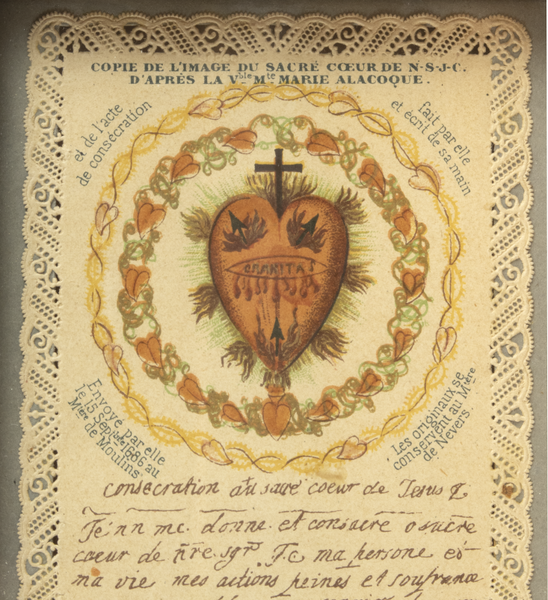 COPIE DE L'IMAGE DU SACRÉ CŒUR DE N·S·J·C.
D'APRÉS LA Vble Mte MARIE ALACOQUE.
et de l'acte
de consécration
fait par elle
et écrit de sa main
CARITAS
Envoyé par elle
le 15 Septbre 1686 au
Mtère de Moulins
Les originaux se
conservent au Mtère
de Nevers
consecration au sacré coeur de Jesus
Je nn me donne et consacre o sacre
coeur de nre sgr J c ma persone et
ma vie mes actions peines et soufrance